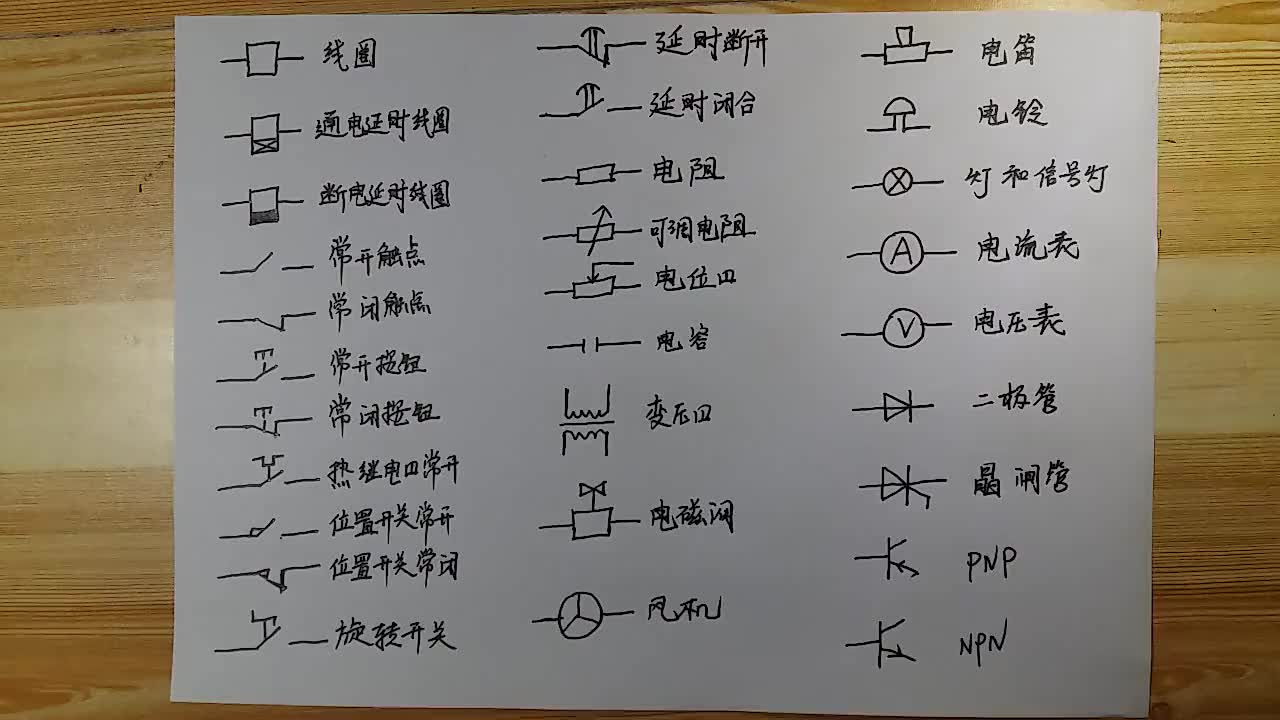 线圈
通电延时线圈
断电延时线圈
常开触点
常闭触点
常开按钮
常闭按钮
热继电口常开
位置开关常开
位置开关常闭
旋转开关
延时断开
延时闭合
电阻
可调电阻
电位口
电容
变压口
电磁阀
风机
电笛
电铃
灯和信号灯
A
电流表
V
电压表
二极管
晶闸管
PNP
NPN